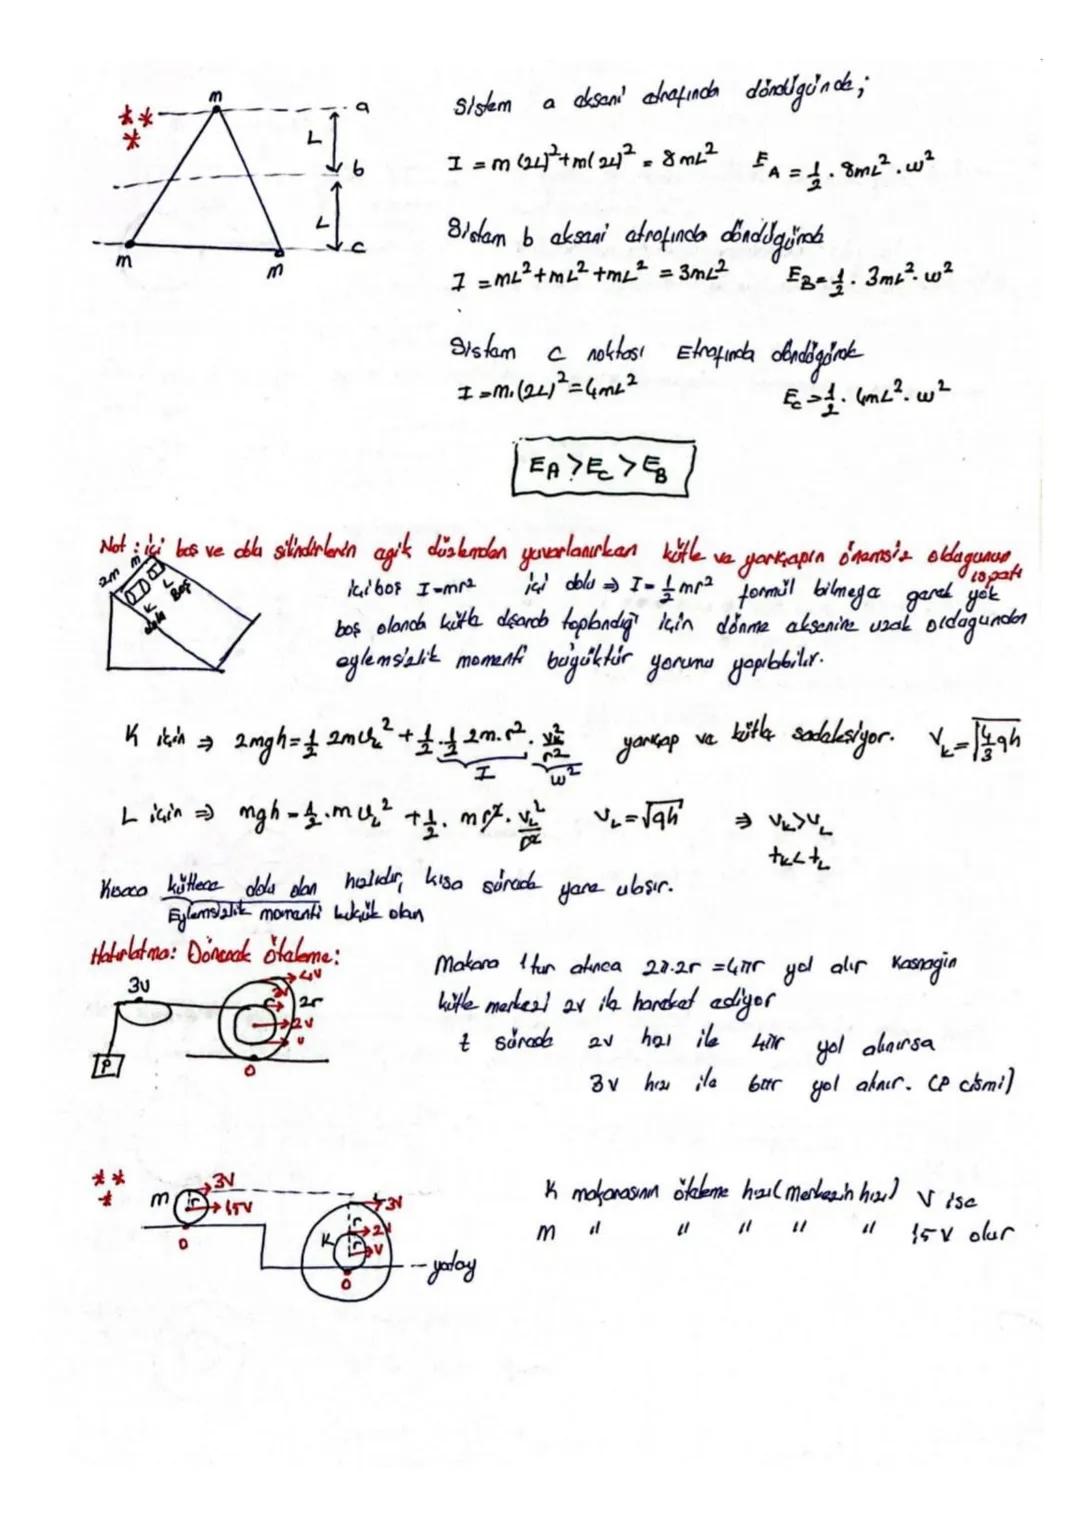 Sistem a aksanı etrafında döndüğünde;
m
a
L
I = m(2L)²+m(2L)² = 8mL² E_A = 1/2 . 8mL² . w²
b
L
Sistem b aksanı etrafında döndüğünde
c
m
m
I = mL²+mL²+mL² = 3mL² E_B = 1/2 . 3mL² . w²
Sistem c noktası Etrafında döndüğünde
I = m.(2L)² = 4mL² E_C = 1/2 . 4mL² . w²
E_A > E_C > E_B
Not : içi boş ve dolu silindirlerin eğik düzlemden yuvarlanırken kütle ve yarıçapın önemsiz olduğunun ispatı
2m m
L Boş
K dolu
içi boş I=mr² içi dolu ⇒ I=1/2 mr² formül bilmeye gerek yok
boş olanda kütle dışarda toplandığı için dönme eksenine uzak olduğundan
eylemsizlik momenti büyüktür yorumu yapılabilir.
K için ⇒ 2mgh = 1/2 2mV_k² + 1/2 . 1/2 2m.r² . V_k²/r² yarıçap ve kütle sadeleşiyor. V_k = √(4/3 gh)
I w²
L için ⇒ mgh = 1/2 . mV_L² + 1/2 . mr² . V_L²/r² V_L = √gh ⇒ V_k > V_L
t_k < t_L
Kısaca kütlece dolu olan hızlıdır, kısa sürede yere ulaşır.
Eylemsizlik momenti küçük olan
Hatırlatma: Dönerek öteleme:
3V
4V
r
2r
2V
V
P
O
Makara 1 tur atınca 2π.2r = 4πr yol alır Kasnağın
kütle merkezi 2v ile hareket ediyor
t sürede 2v hızı ile 4πr yol alınırsa
3v hızı ile 6πr yol alınır. (P cismi)
m
r
3V
1,5V
O
3V
r
2V
K
r
V
O
yatay
K makarasının öteleme hızı (merkezin hızı) V ise
m " " " " " 1,5V olur